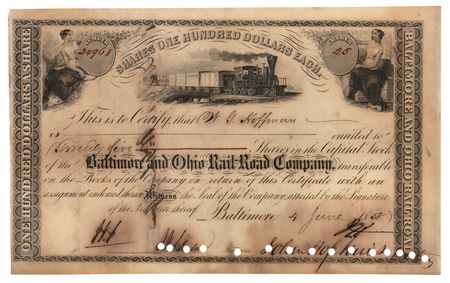 NUMBER
SHARES ONE HUNDRED DOLLARS EACH.
SHARES
25
ONE HUNDRED DOLLARS A SHARE
BALTIMORE AND OHIO RAILROAD
This is to Certify, that W G Hoffman
is entitled to
Twenty five Shares in the Capital Stock
of the Baltimore and Ohio Rail Road Company, transferable
on the Books of the Company on return of this Certificate with an
assignment endorsed thereon. Witness the Seal of the Company, attested by the Signature
of the Treasurer thereof.
Baltimore 4 June